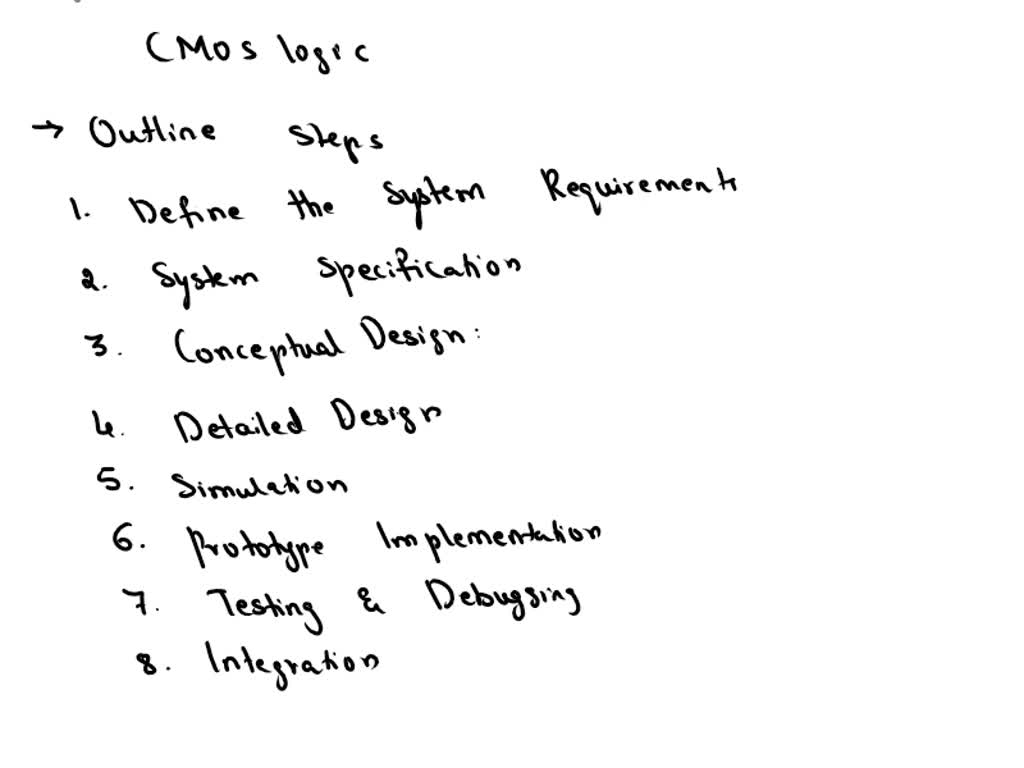 CMOS logic
→ Outline Steps
1. Define the System Requirements
2. System Specification
3. Conceptual Design:
4. Detailed Design
5. Simulation
6. Prototype Implementation
7. Testing & Debugging
8. Integration